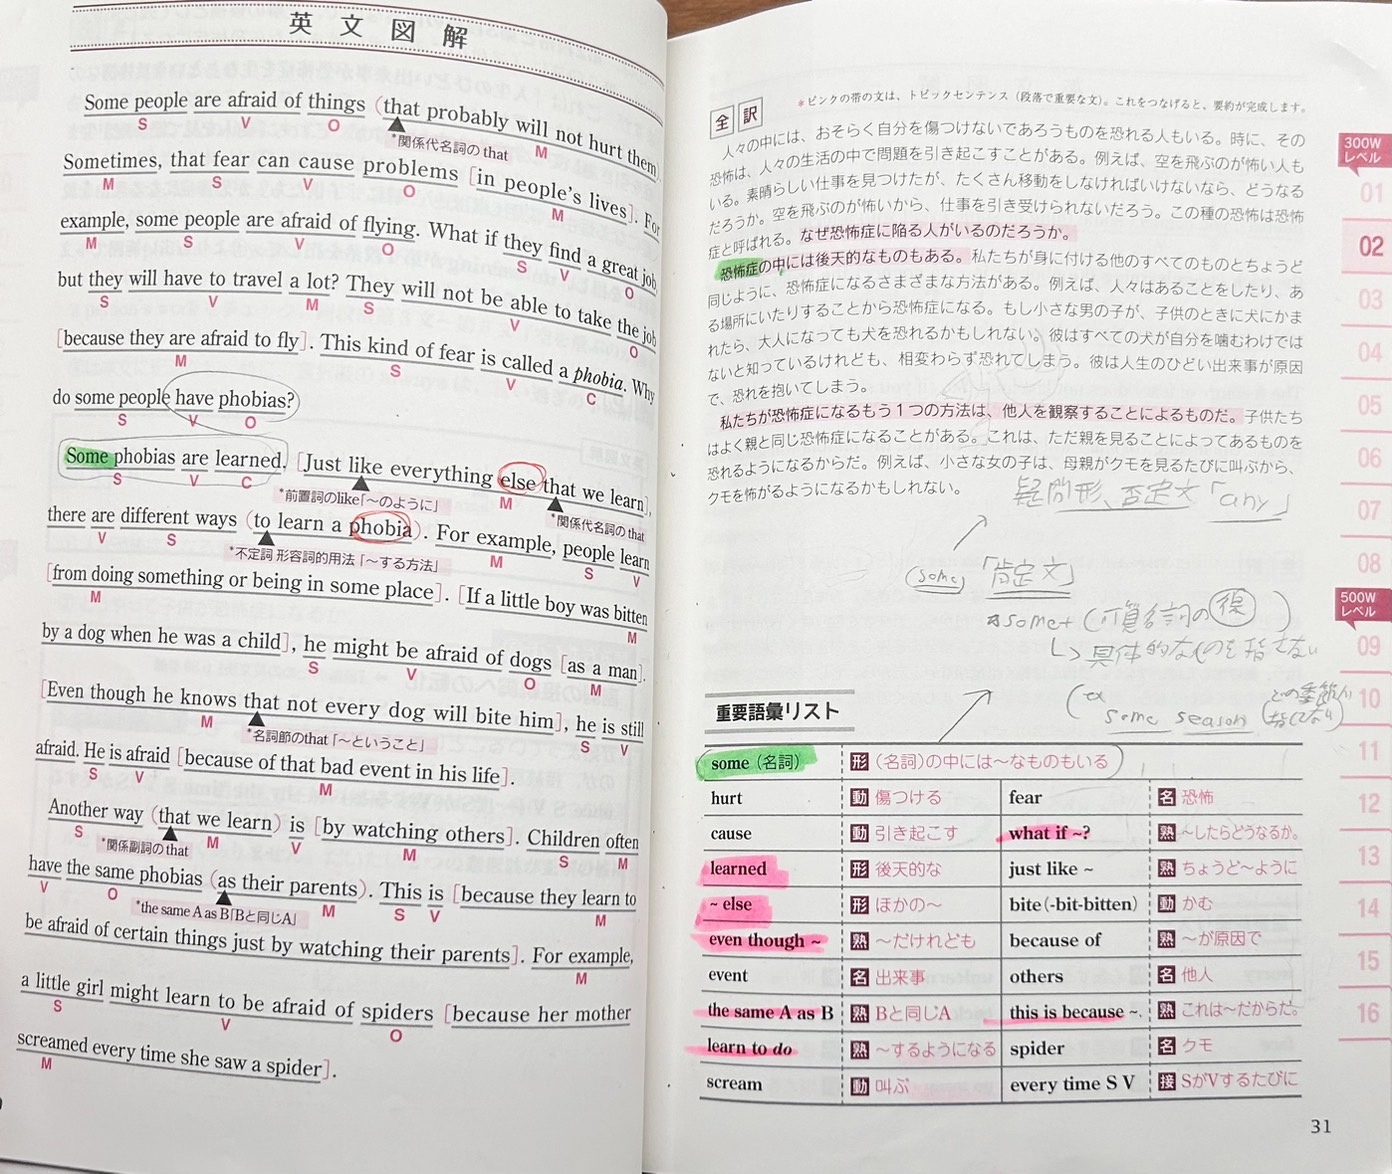 英文図解
Some people are afraid of things (that probably will not hurt them).
S V O M
*関係代名詞の that
Sometimes, that fear can cause problems [in people's lives]. For
M S V O M
example, some people are afraid of flying. What if they find a great job,
M S V O S V O
but they will have to travel a lot? They will not be able to take the job
S V M S V O
[because they are afraid to fly]. This kind of fear is called a phobia. Why
M S V C
do some people have phobias?
S V O
Some phobias are learned, [Just like everything else that we learn],
S V C M
*前置詞のlike「～のように」
*関係代名詞の that
there are different ways (to learn a phobia). For example, people learn
V S M S V
*不定詞 形容詞的用法「～する方法」
[from doing something or being in some place]. [If a little boy was bitten
M M
by a dog when he was a child], he might be afraid of dogs [as a man].
S V O M
[Even though he knows that not every dog will bite him], he is still
M S V
*名詞節のthat「～ということ」
afraid. He is afraid [because of that bad event in his life].
S V M
Another way (that we learn) is [by watching others]. Children often
S M V M S M
*関係副詞の that
have the same phobias (as their parents). This is [because they learn to
V O M S V M
*the same A as B「Bと同じA」
be afraid of certain things just by watching their parents]. For example,
M
a little girl might learn to be afraid of spiders [because her mother
S V O
screamed every time she saw a spider].
M
全訳
*ピンクの帯の文は、トピックセンテンス(段落で重要な文)。これをつなげると、要約が完成します。
人々の中には、おそらく自分を傷つけないであろうものを恐れる人もいる。時に、その
恐怖は、人々の生活の中で問題を引き起こすことがある。例えば、空を飛ぶのが怖い人も
いる。素晴らしい仕事を見つけたが、たくさん移動をしなければいけないなら、どうなる
だろうか。空を飛ぶのが怖いから、仕事を引き受けられないだろう。この種の恐怖は恐怖
症と呼ばれる。なぜ恐怖症に陥る人がいるのだろうか。
恐怖症の中には後天的なものもある。私たちが身に付ける他のすべてのものとちょうど
同じように、恐怖症になるさまざまな方法がある。例えば、人々はあることをしたり、あ
る場所にいたりすることから恐怖症になる。もし小さな男の子が、子供のときに犬にかま
れたら、大人になっても犬を恐れるかもしれない。彼はすべての犬が自分を噛むわけでは
ないと知っているけれども、相変わらず恐れてしまう。彼は人生のひどい出来事が原因
で、恐れを抱いてしまう。
私たちが恐怖症になるもう1つの方法は、他人を観察することによるものだ。子供たち
はよく親と同じ恐怖症になることがある。これは、ただ親を見ることによってあるものを
恐れるようになるからだ。例えば、小さな女の子は、母親がクモを見るたびに叫ぶから、
クモを怖がるようになるかもしれない。
疑問形、否定文「any」
some 「肯定文」
*some+(可算名詞の複)
↳具体的なものを指さない
(ex some season
重要語彙リスト
some (名詞) 形 (名詞)の中には～なものもいる
hurt 動 傷つける fear 名 恐怖
cause 動 引き起こす what if ~? 熟 ～したらどうなるか。
learned 形 後天的な just like ~ 熟 ちょうど～ように
~ else 形 ほかの～ bite (-bit-bitten) 動 かむ
even though ~ 熟 ～だけれども because of 熟 ～が原因で
event 名 出来事 others 名 他人
the same A as B 熟 Bと同じA this is because ~. 熟 これは～だからだ。
learn to do 熟 ～するようになる spider 名 クモ
scream 動 叫ぶ every time S V 接 SがVするたびに
31
300W
レベル
01
02
03
04
05
06
07
08
500W
レベル
09
10
11
12
13
14
15
16